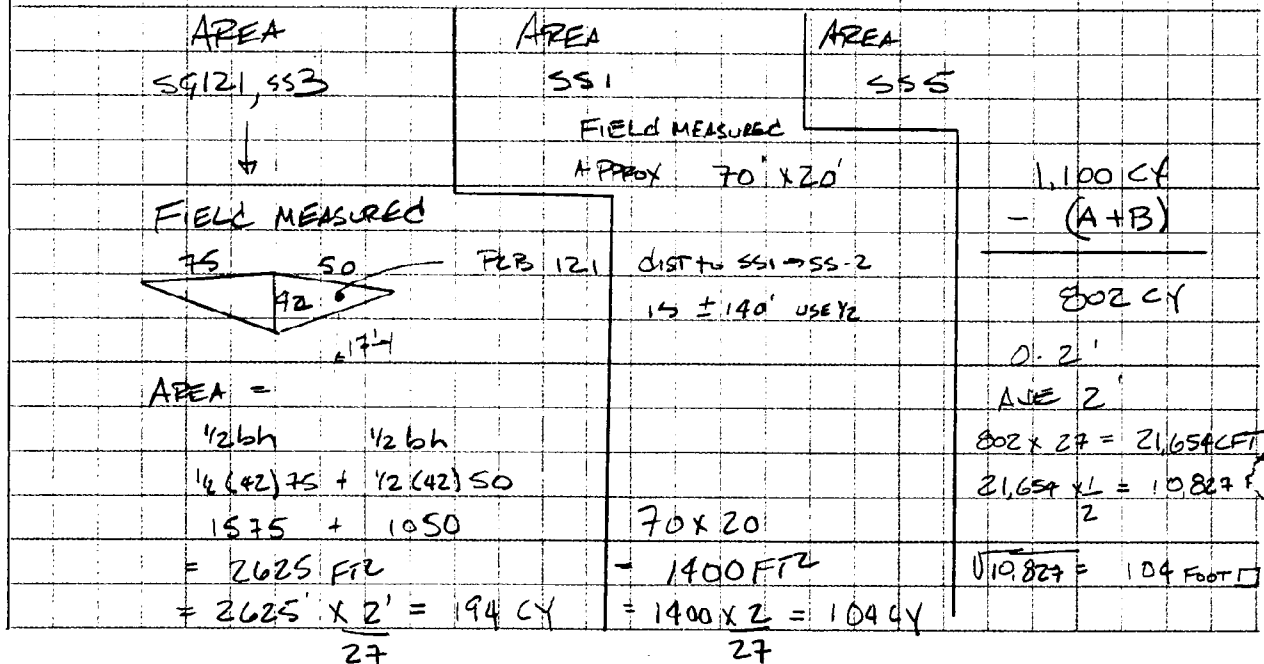 AREA
SG121, SS3
FIELD MEASURED
75 50
42
PZB 121
17'-1
AREA =
1/2bh 1/2bh
1/2(42)75 + 1/2(42)50
1575 + 1050
= 2625 FT2
= 2625' x 2' = 194 CY
27
AREA
SS1
FIELD MEASURED
APPROX 70' x 20'
dist to SS1 → SS-2
is ± 140' USE 1/2
70 x 20
= 1400 FT2
= 1400 x 2 = 104 CY
27
AREA
SS5
1,100 CY
- (A+B)
802 CY
0-2'
AVE 2'
802 x 27 = 21,654 CFT
21,654 x 1 = 10,827 F
2
√10,827 = 104 FOOT □